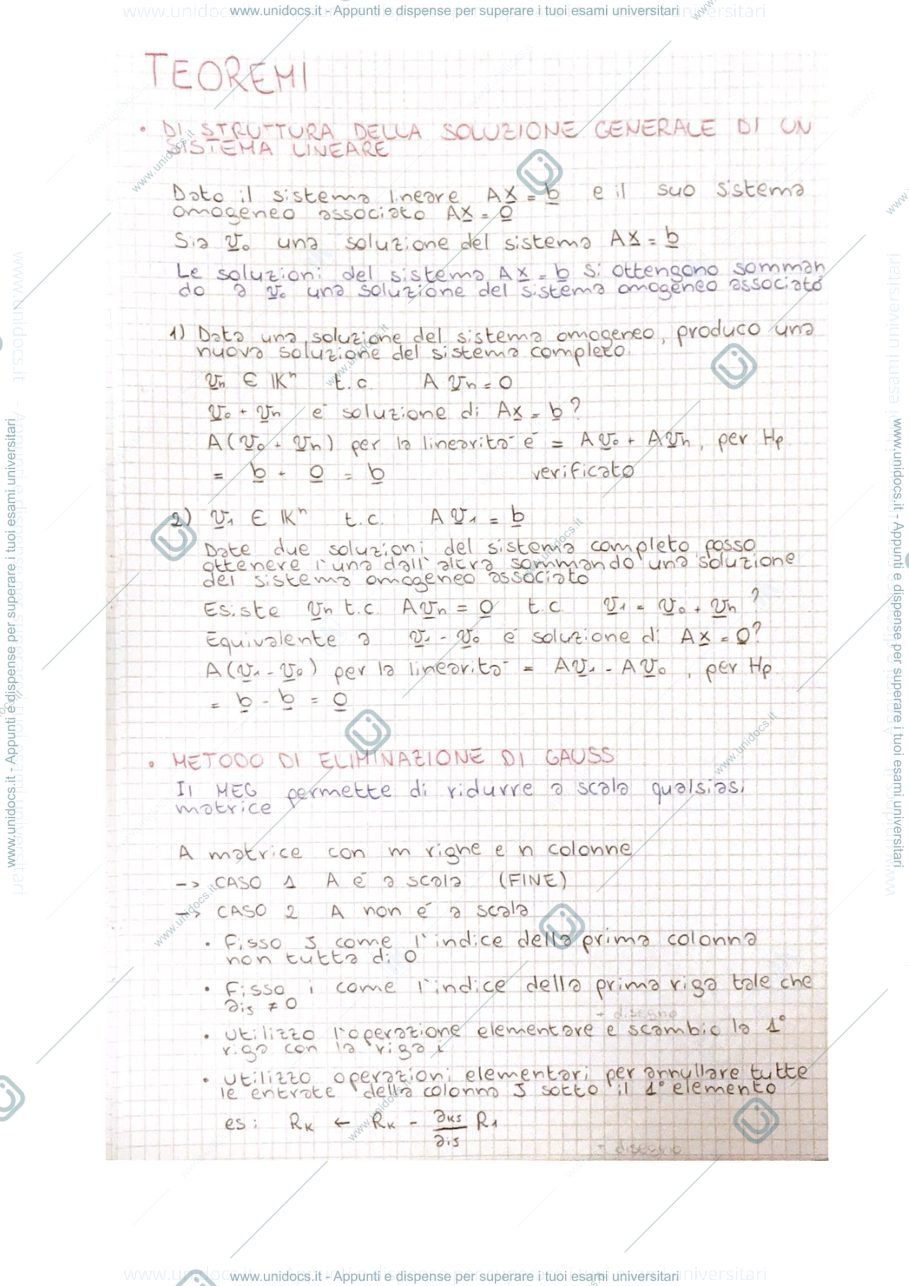 www.unidocs.it - Appunti e dispense per superare i tuoi esami universitari
TEOREMI
• DI STRUTTURA DELLA SOLUZIONE GENERALE DI UN
SISTEMA LINEARE
Dato il sistema lineare Ax = b e il suo sistema
omogeneo associato Ax = 0
Sia v₀ una soluzione del sistema Ax = b
Le soluzioni del sistema Ax = b si ottengono somman
do a v₀ una soluzione del sistema omogeneo associato
1) Data una soluzione del sistema omogeneo, produco una
nuova soluzione del sistema completo
vₕ ∈ Kⁿ t.c. A vₕ = 0
v₀ + vₕ e' soluzione di Ax = b?
A(v₀ + vₕ) per la linearita' e' = Av₀ + Avₕ, per Hp
= b + 0 = b verificato
2) v₁ ∈ Kⁿ t.c. A v₁ = b
Date due soluzioni del sistema completo posso
ottenere l'una dall'altra sommando una soluzione
del sistema omogeneo associato
Esiste vₕ t.c. Avₕ = 0 t.c. v₁ = v₀ + vₕ ?
Equivalente a v₁ - v₀ e' soluzione di Ax = 0?
A(v₁ - v₀) per la linearita' = Av₁ - Av₀, per Hp
= b - b = 0
• METODO DI ELIMINAZIONE DI GAUSS
Il MEG permette di ridurre a scala qualsiasi
matrice
A matrice con m righe e n colonne
-> CASO 1 A é a scala (FINE)
-> CASO 2 A non é a scala
• Fisso J come l'indice della prima colonna
non tutta di 0
• Fisso i come l'indice della prima riga tale che
aᵢⱼ ≠ 0
+ disegno
• Utilizzo l'operazione elementare e scambio la 1°
riga con la riga i
• Utilizzo operazioni elementari per annullare tutte
le entrate della colonna J sotto il 1° elemento
es: Rₖ ← Rₖ - aₖⱼ/aᵢⱼ R₁
+ disegno
www.unidocs.it - Appunti e dispense per superare i tuoi esami universitari
www.unidocs.it - Appunti e dispense per superare i tuoi esami universitari
www.unidocs.it - Appunti e dispense per superare i tuoi esami universitari